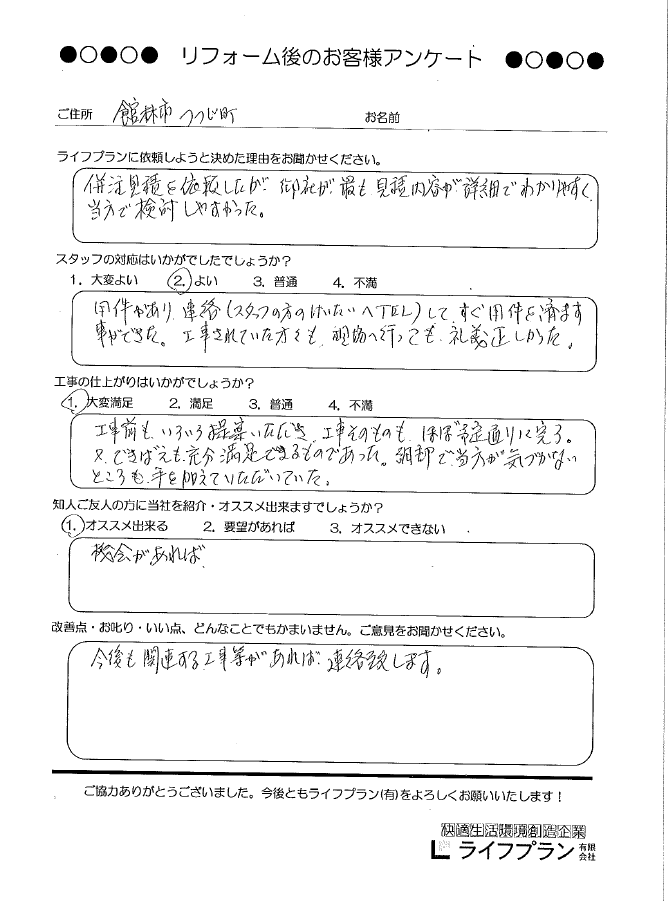 ●○●○● リフォーム後のお客様アンケート ●○●○●
ご住所 館林市 つつじ町 お名前
ライフプランに依頼しようと決めた理由をお聞かせください。
見積を依頼したが 御社が 最も 見積内容が 詳細で わかりやすく
当方で検討しやすかった。
スタッフの対応はいかがでしたでしょうか?
1. 大変よい 2. よい 3. 普通 4. 不満
用件があり 連絡(スタッフの方のけいたいへTEL)して、すぐ用件を済ます
事ができた。工事されていた方々も、現場へ行っても、礼義正しかった。
工事の仕上がりはいかがでしょうか?
1. 大変満足 2. 満足 3. 普通 4. 不満
工事前も、いろいろ提案いただき、工事そのものも、ほぼ予定通りに完了。
又、できばえも充分満足できるものであった。細部で当方が気づかない
ところも、手を加えていただいていた。
知人ご友人の方に当社を紹介・オススメ出来ますでしょうか?
1. オススメ出来る 2. 要望があれば 3. オススメできない
機会があれば
改善点・お叱り・いい点、どんなことでもかまいません。ご意見をお聞かせください。
今後も関連する工事等があれば 連絡致します。
ご協力ありがとうございました。今後ともライフプラン(有)をよろしくお願いいたします!
快適生活環境創造企業
ライフプラン 有限会社